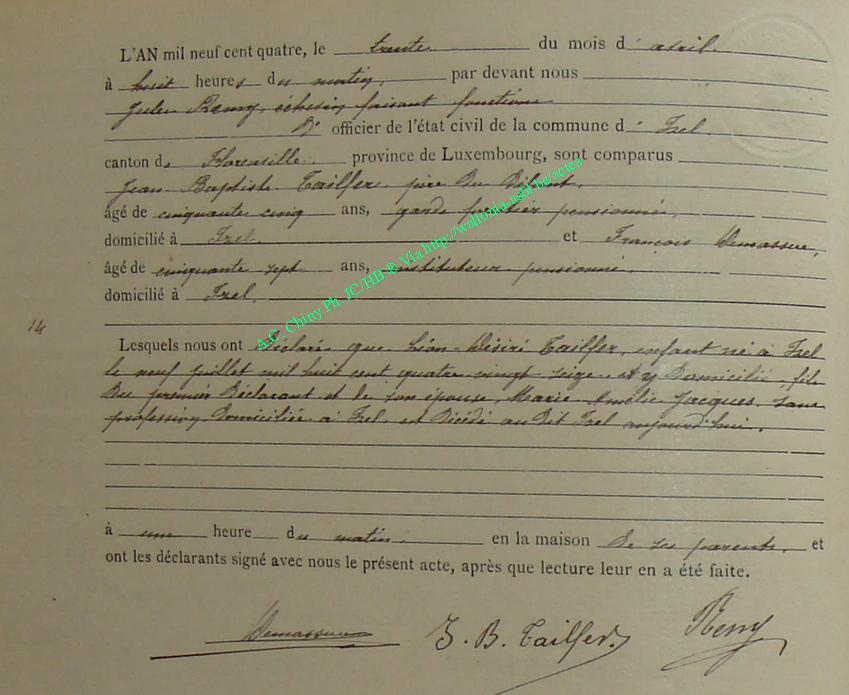 L'AN mil neuf cent quatre, le trente du mois d' avril
à huit heures du matin, par devant nous
Jules Remy, échevin faisant fonctions
D' officier de l'état civil de la commune d' Izel
canton de Florenville province de Luxembourg, sont comparus
Jean Baptiste Tailfer, père du défunt,
âgé de cinquante cinq ans, garde forestier pensionné,
domicilié à Izel et François Demasure,
âgé de cinquante sept ans, instituteur pensionné,
domicilié à Izel,
14
Lesquels nous ont déclaré que Léon-Désiré Tailfer, enfant né à Izel
le neuf juillet mil huit cent quatre vingt seize et y domicilié, fils
du premier déclarant et de son épouse, Marie Amélie Jacques, sans
profession, domiciliée à Izel, est décédé au dit Izel aujourd'hui.
à une heure du matin en la maison de ses parents, et
ont les déclarants signé avec nous le présent acte, après que lecture leur en a été faite.
J. B. Tailfer Remy
A.C. Chiny Ph. JC/HB ® Via http://wallonia-asbl.be/actes